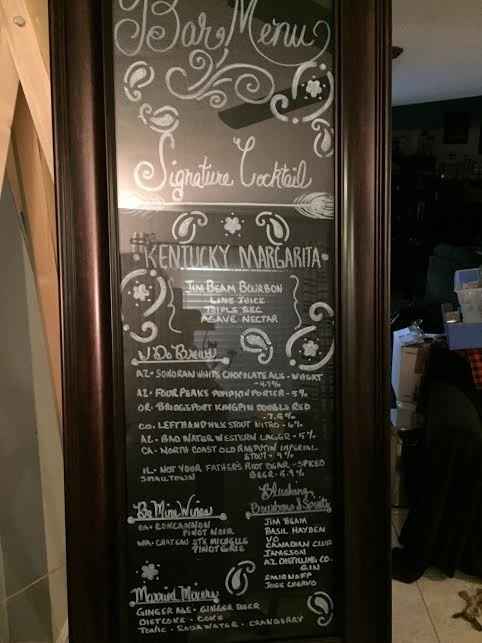 Bar Menu
Signature Cocktail
KENTUCKY MARGARITA
JIM BEAM BOURBON
LIME JUICE
TRIPLE SEC
AGAVE NECTAR
"I Do" Brews
AZ• SONORAN WHITE CHOCOLATE ALE - WHEAT
-4.7%
AZ• FOUR PEAKS PUMPKIN PORTER - 5%
OR• BRIDGEPORT KINGPIN DOUBLE RED
-7.5%
CO• LEFTHAND MILK STOUT NITRO - 6%
AZ• BAD WATER WESTERN LAGER - 5%
CA• NORTH COAST OLD RASPUTIN IMPERIAL
STOUT - 9%
IL• NOT YOUR FATHER'S ROOT BEAR - SPIKED
SMALLTOWN BEER - 5.9%
Be Mine Wines
CA• CONCANNON
PINOT NOIR
WA• CHATEAU STE MICHELLE
PINOT GRIS
Blushing
Bourbons & Spirits
JIM BEAM
BASIL HAYDEN
VO
CANADIAN CLUB
JAMESON
AZ DISTILLING CO.
GIN
SMIRNOFF
JOSE CUERVO
Married Mixers
GINGER ALE • GINGER BEER
DIET COKE • COKE
TONIC • SODA WATER • CRANBERRY